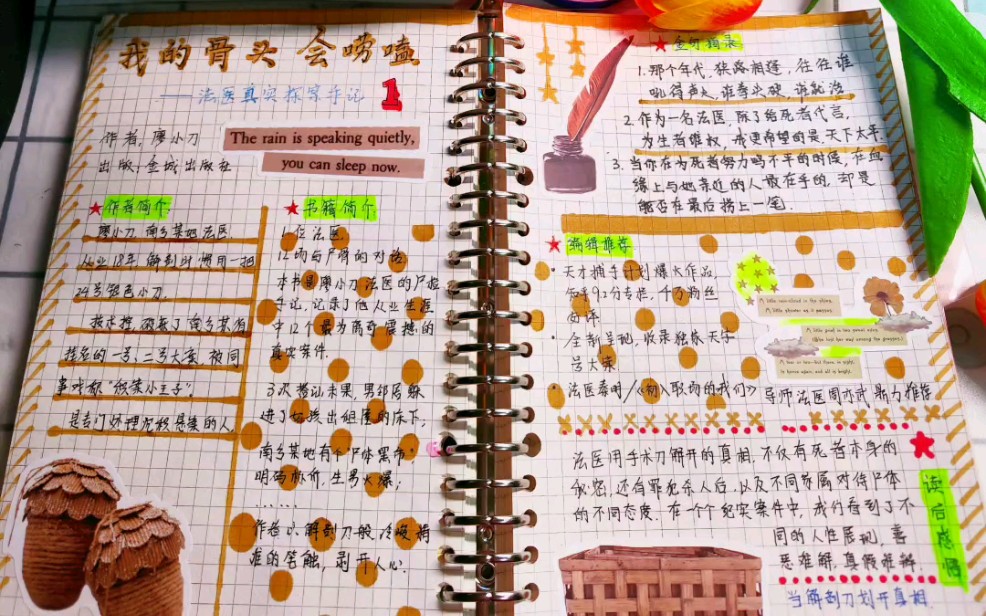 我的骨头会唠嗑
——法医真实探案手记 1
作者：廖小刀
出版：金城出版社
The rain is speaking quietly,
you can sleep now.
作者简介
廖小刀 南乡某地法医
从业18年 解剖时惯用一把
24号银色小刀.
技术控 破获了南乡某有
挂名的一号、二号大案 被同
事戏称"积案小王子".
是专门处理沉积悬案的人.
书籍简介
1位法医
12场与尸骨的对话
本书是廖小刀法医的尸检
手记，记录了他从业生涯
中12个最为离奇震撼的
真实案件.
3次搭讪未果，男邻居躲
进了女孩出租屋的床下；
南乡某地有个"尸体黑市"
明码标价，生男火爆；
……
作者以解剖刀般冷峻精
准的笔触，剥开人心.
金句摘录
1.那个年代，狭路相逢，往往谁
吼得声大，谁拳头硬，谁就沾
2.作为一名法医 除了给死者代言，
为生者维权，我更希望的是天下太平
3.当你在为死者努力鸣不平的时候，在血
缘上与她亲近的人最在乎的，却是
能否在最后捞上一笔.
编辑推荐
天才捕手计划爆火作品，
知乎9.2分专栏，千万粉丝
好评
全新呈现，收录独家天字
号大案
法医秦明/《初入职场的我们》导师法医周亦武 鼎力推荐
法医用手术刀解开的真相，不仅有死者本身的
秘密，还有罪犯杀人后，以及不同家属对待尸体
的不同态度.在一个个纪实案件中，我们看到了不
同的人性展现，善
恶难解，真假难辨.
读后感悟
当解剖刀划开真相